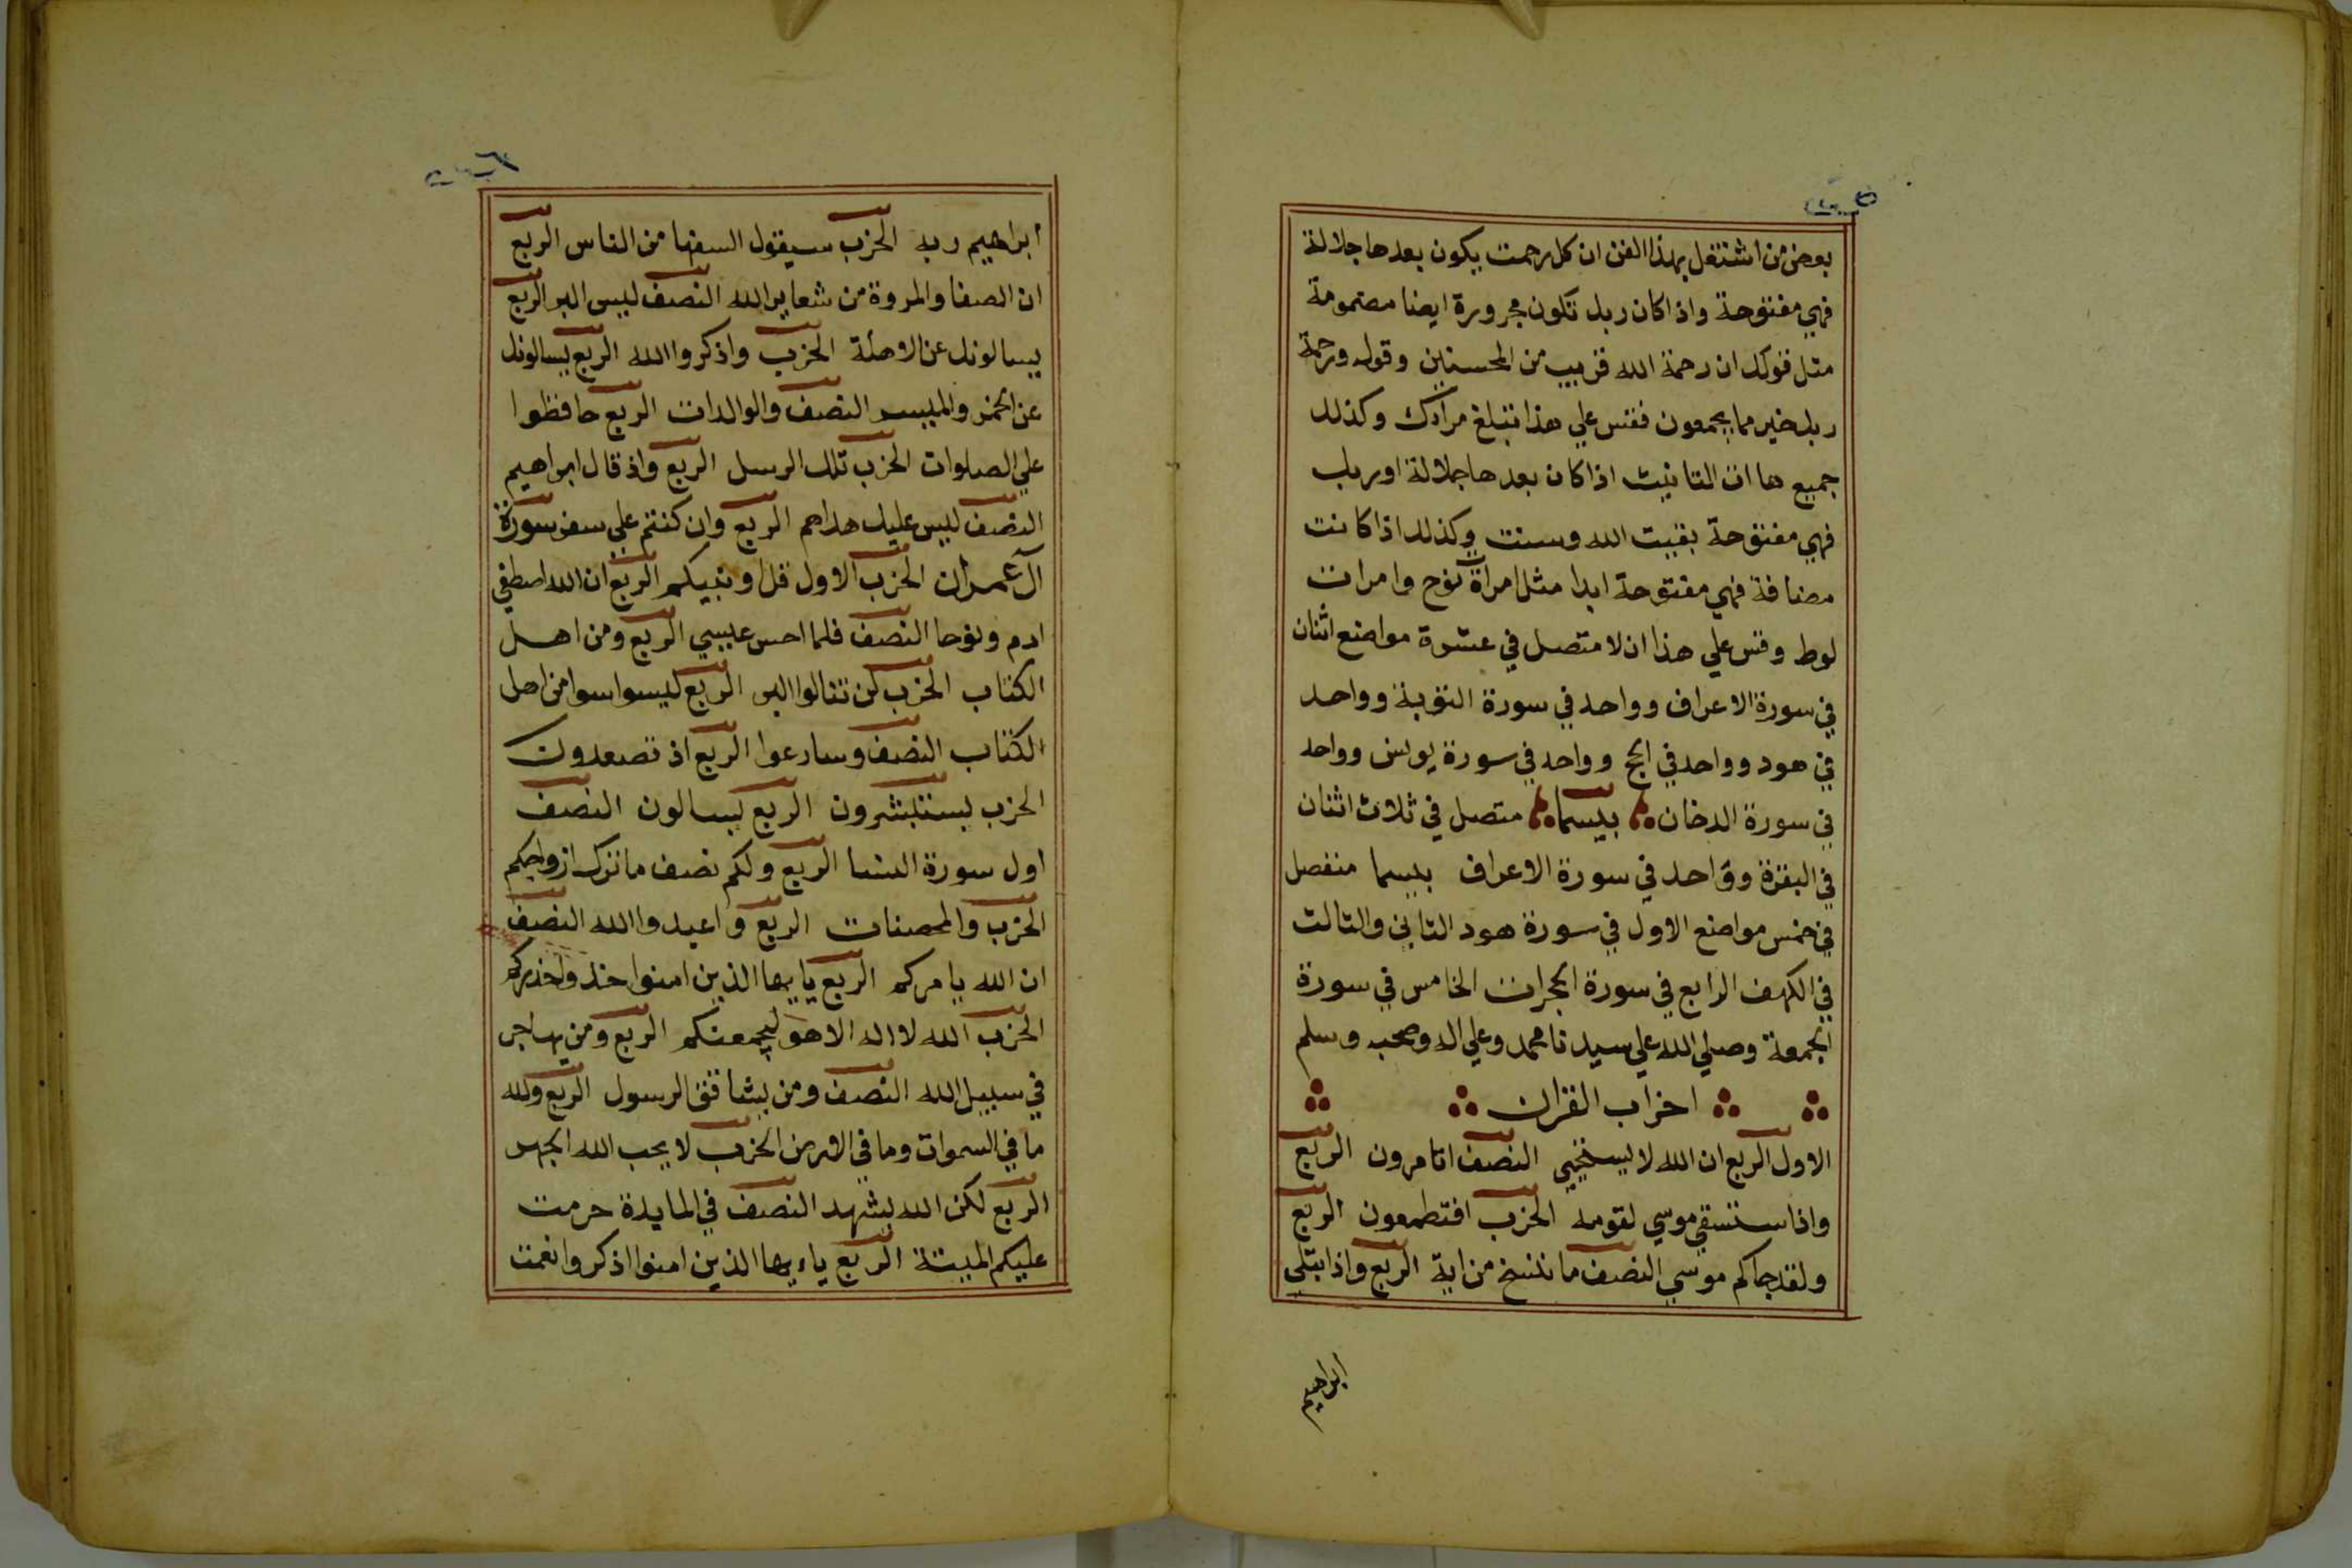 بعض من اشتغل بهذا الفن ان كل رحمت يكون بعدها جلالة
فهي مفتوحة واذا كان ربك تكون مجرورة ايضا مضمومة
مثل قولك ان رحمة الله قريب من المحسنين وقوله ورحمة
ربك خير مما يجمعون فقس علي هذا تبلغ مرادك وكذلك
جميع هاات التانيث اذا كان بعدها جلالة او ربك
فهي مفتوحة بقيت الله وسنت وكذلك اذا كانت
مضافة فهي مفتوحة ابدا مثل امراة نوح وامرات
لوط وقس علي هذا ان لا متصل في عشرة مواضع اثنان
في سورة الاعراف وواحد في سورة التوبة وواحد
في هود وواحد في الحج وواحد في سورة يونس وواحد
في سورة الدخان بيسما متصل في ثلاث اثنان
في البقرة وواحد في سورة الاعراف بيسما منفصل
في خمس مواضع الاول في سورة هود الثاني والثالث
في الكهف الرابع في سورة الحجرات الخامس في سورة
الجمعة وصلي الله علي سيدنا محمد وعلي اله وصحبه وسلم
احزاب القران
الاول الربع ان الله لا يستحيي النصف اتامرون الربع
واذا ستسقي موسي لقومه الحزب افتطمعون الربع
ولقد جاكم موسي النصف ما ننسخ من اية الربع واذ ابتلي
ابراهيم
ابراهيم ربه الحزب سيقول السفها من الناس الربع
ان الصفا والمروة من شعاير الله النصف ليس البر الربع
يسالونك عن الاهلة الحزب واذكروا الله الربع يسالونك
عن الخمر والميسر النصف والوالدات الربع حافظوا
علي الصلوات الحزب تلك الرسل الربع واذ قال ابراهيم
النصف ليس عليك هداهم الربع وان كنتم علي سفر سورة
آل عمران الحزب الاول قل اونبيكم الربع ان الله اصطفي
ادم ونوحا النصف فلما احس عيسي الربع ومن اهل
الكتاب الحزب لن تنالوا البر الربع ليسوا سوا من اهل
الكتاب النصف وسارعوا الربع اذ تصعدون
الحزب يستبشرون الربع يسالون النصف
اول سورة النسا الربع ولكم نصف ما ترك ازواجكم
الحزب والمحصنات الربع واعبدوا الله النصف
ان الله يامركم الربع يايها الذين امنوا خذوا حذركم
الحزب الله لا اله الا هو ليجمعنكم الربع ومن يهاجر
في سبيل الله النصف ومن يشاقق الرسول الربع ولله
ما في السموات وما في الارض الحزب لا يحب الله الجهر
الربع لكن الله يشهد النصف في المايدة حرمت
عليكم الميتة الربع ياءيها الذين امنوا اذكروا نعمت